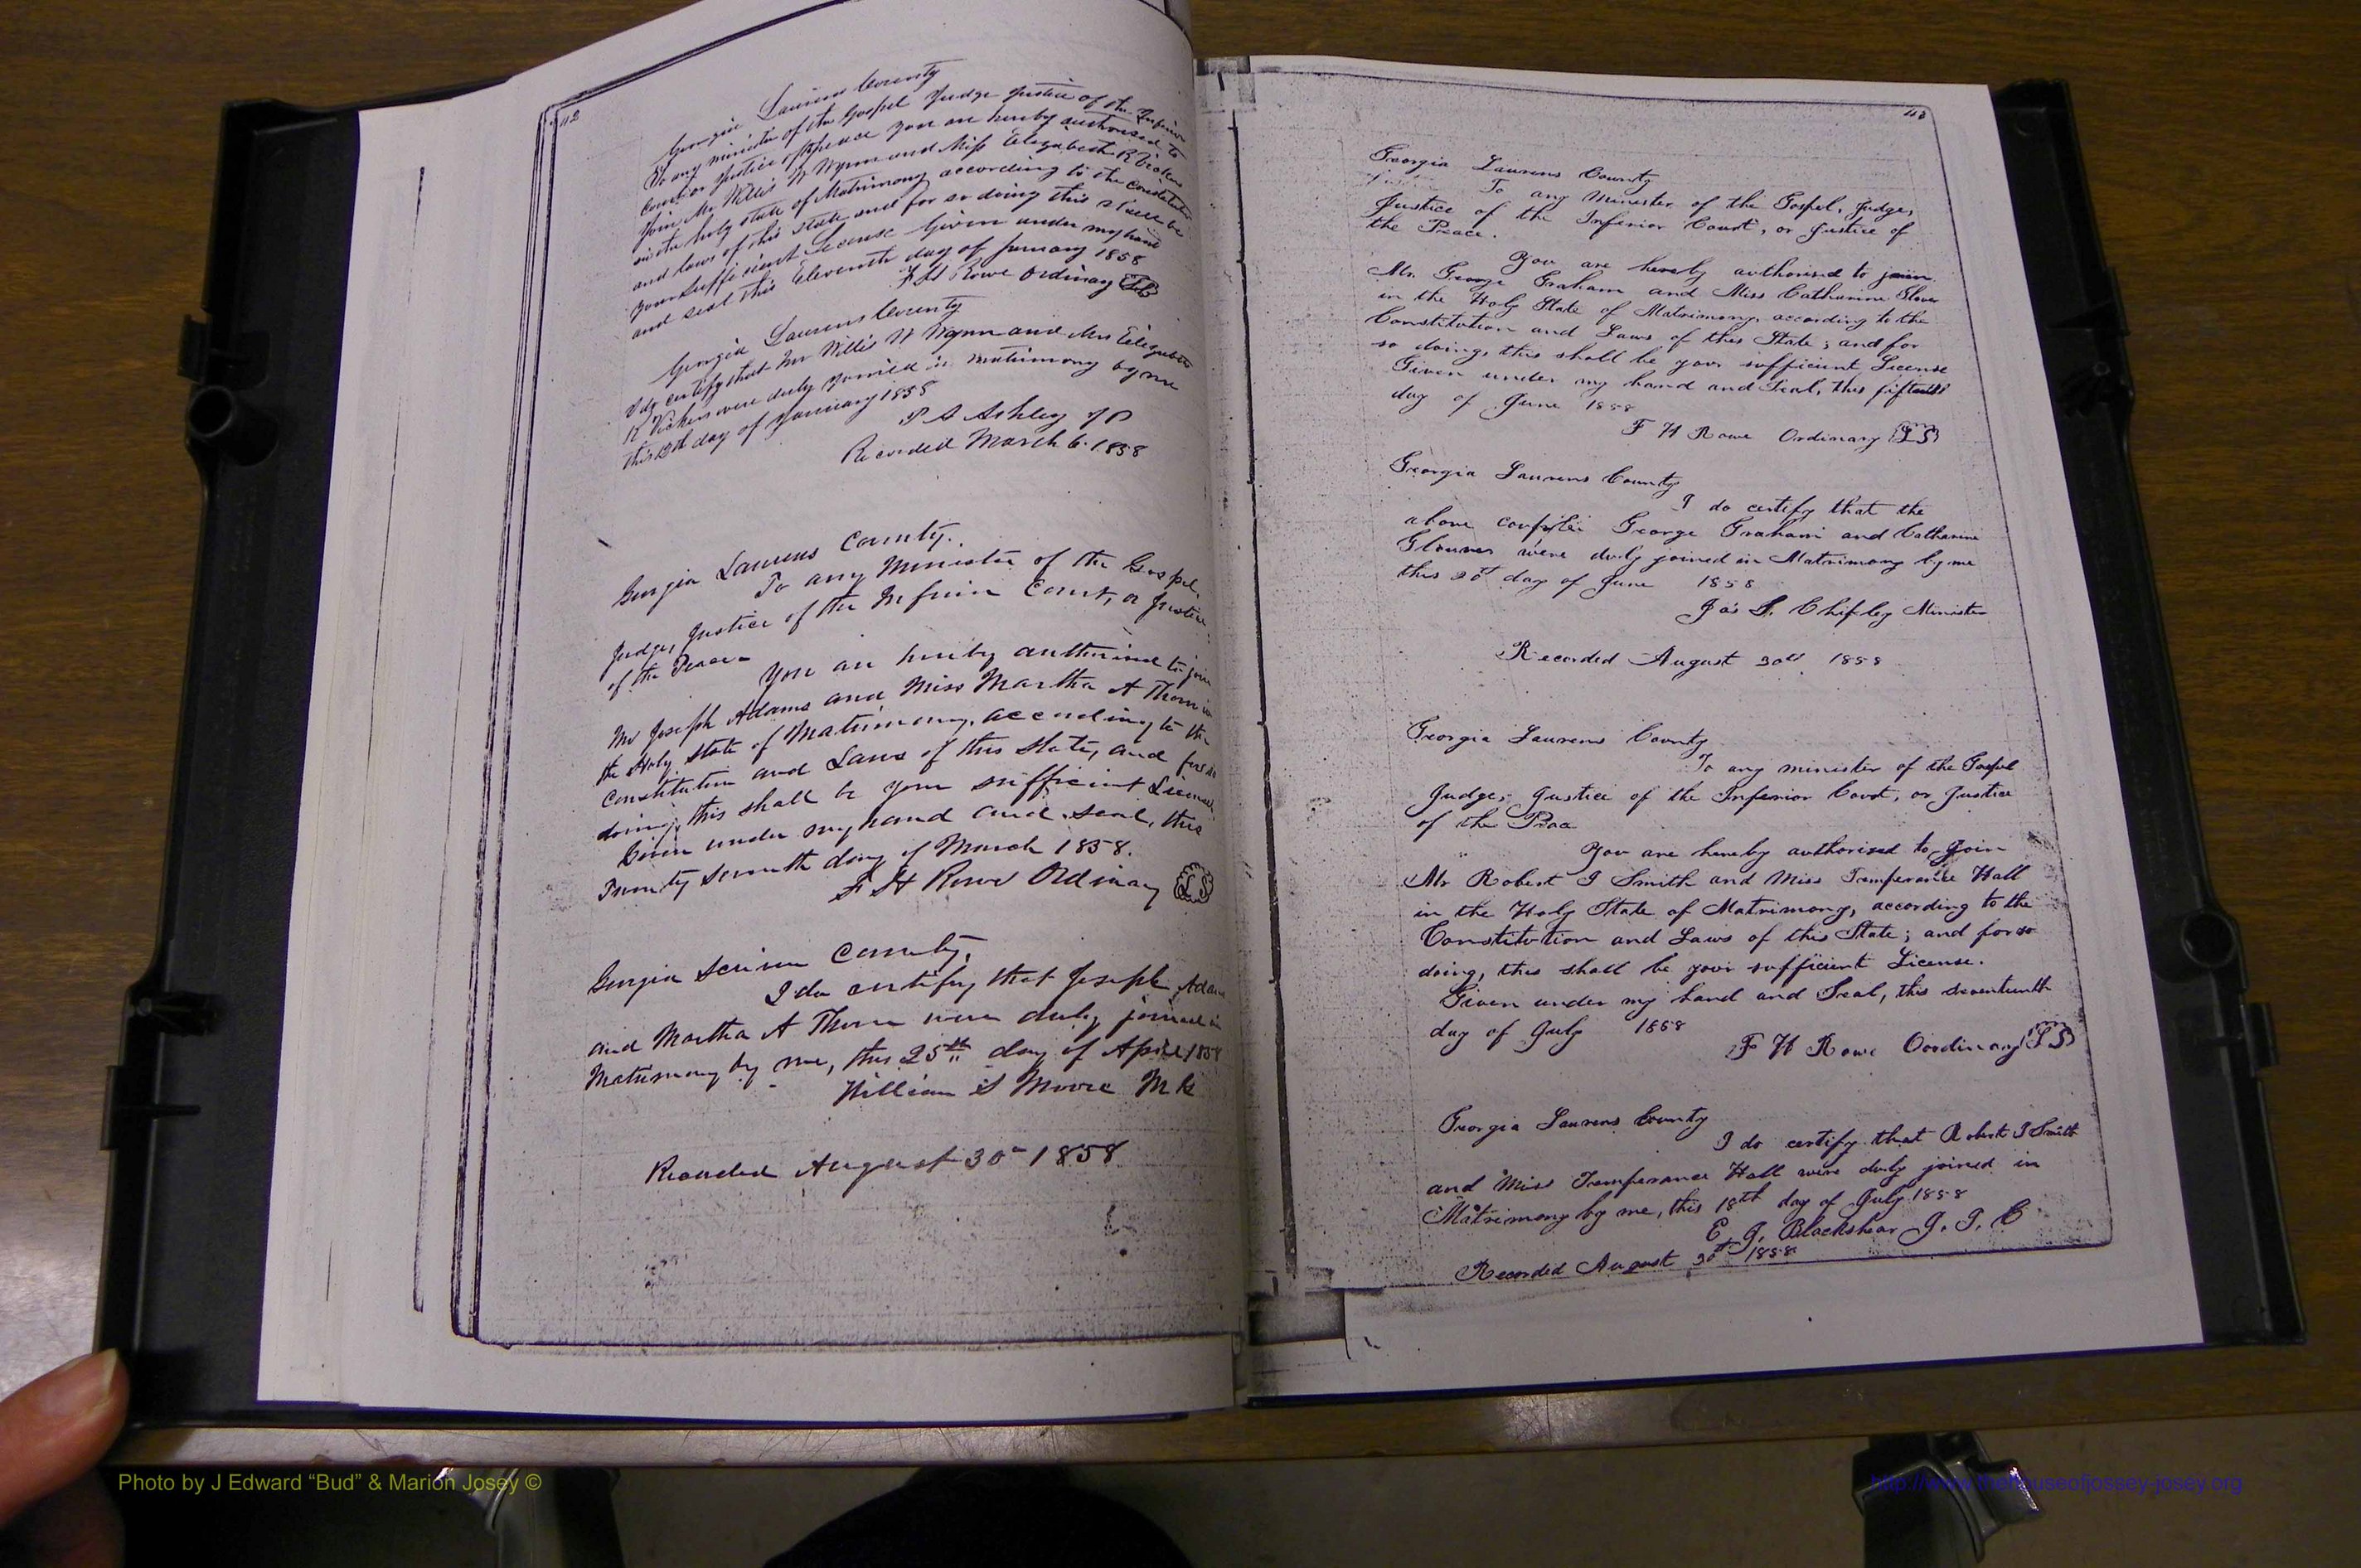 42
Georgia Laurens County
To any minister of the Gospel Judge Justice of the Inferior
Court or Justice of the peace you are hereby authorised to
join Mr Willis W Wynn and Miss Elizabeth R Vickers
in the holy state of Matrimony according to the constitution
and laws of this state and for so doing this shall be
your sufficient License Given under my hand
and seal this Eleventh day of January 1858
F H Rowe Ordinary LS
Georgia Laurens County
I do certify that Mr Willis W Wynn and Mrs Elizabeth
R Vickers were duly joined in matrimony by me
this day of January 1858
Ashley J P
Recorded March 6 1858
Georgia Laurens County.
To any Minister of the Gospel,
Judge, Justice of the Inferior Court, or Justice
of the Peace
You are hereby authorised to join
Mr Joseph Adams and Miss Martha A Thorn in
the Holy State of Matrimony, according to the
Constitution and Laws of this State, and for so
doing, this shall be your sufficient License
Given under my hand and seal, this
Twenty seventh day of March 1858.
F H Rowe Ordinary LS
Georgia Scriven County,
I do certify that Joseph Adams
and Martha A Thorn were duly joined in
Matrimony by me, this 25th day of April 1858
William S Moore
Recorded August 30th 1858
43
Georgia Laurens County
To any Minister of the Gospel, Judge,
Justice of the Inferior Court, or Justice of
the Peace.
You are hereby authorised to join
Mr. George Graham and Miss Catharine Glover
in the Holy State of Matrimony, according to the
Constitution and Laws of this State; and for
so doing, this shall be your sufficient License
Given under my hand and Seal, this fifteenth
day of June 1858
F H Rowe Ordinary LS
Georgia Laurens County
I do certify that the
above George Graham and Catharine
were duly joined in Matrimony by me
this 20th day of June 1858
Jas S. Chipley Minister
Recorded August 30th 1858
Georgia Laurens County
To any minister of the Gospel
Judge, Justice of the Inferior Court, or Justice
of the Peace
You are hereby authorised to join
Mr Robert J Smith and Miss Temperance Hall
in the Holy State of Matrimony, according to the
Constitution and Laws of this State; and for so
doing, this shall be your sufficient License.
Given under my hand and Seal, this seventeenth
day of July 1858
F H Rowe Oordinary LS
Georgia Laurens County
I do certify that Robert J Smith
and Miss Temperance Hall were duly joined in
Matrimony by me, this 18th day of July 1858
E. J. Blackshear J. I. C
Recorded August 30th 1858
Photo by J Edward “Bud” & Marion Josey ©
http://www.thehouseofjossey-josey.org